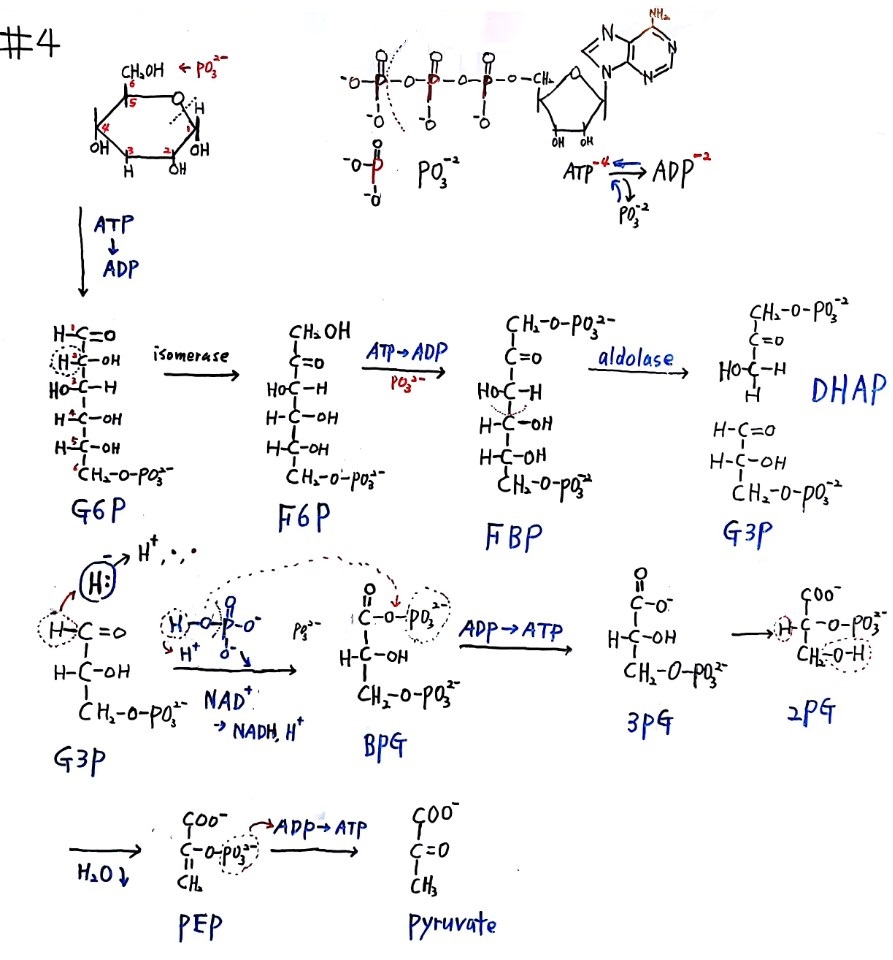 #4
CH₂OH ← PO₃²⁻
6
5
O
H
4
1
OH
3
2
OH
H
OH
NH₂
N
N
N
N
O
O
O
⁻O-P-O-P-O-P-O-CH₂
O
⁻O
⁻O
⁻O
OH
OH
⁻O-P-O
⁻O
PO₃⁻²
ATP⁻⁴ ⇄ ADP⁻²
PO₃⁻²
ATP
↓
ADP
H-¹C=O
H-²C-OH
HO-³C-H
H-⁴C-OH
H-⁵C-OH
⁶CH₂-O-PO₃²⁻
G6P
isomerase
CH₂OH
C=O
HO-C-H
H-C-OH
H-C-OH
CH₂-O-PO₃²⁻
F6P
ATP→ADP
PO₃²⁻
CH₂-O-PO₃²⁻
C=O
HO-C-H
H-C-OH
H-C-OH
CH₂-O-PO₃⁻²
FBP
aldolase
CH₂-O-PO₃⁻²
C=O
HO-C-H
H
DHAP
H-C=O
H-C-OH
CH₂-O-PO₃⁻²
G3P
H:⁻ → H⁺, :, ·
H-C=O
H-C-OH
CH₂-O-PO₃²⁻
G3P
O
H-O-P-O⁻
O⁻
H⁺
NAD⁺
→ NADH, H⁺
PO₃²⁻
O
C-O-PO₃²⁻
H-C-OH
CH₂-O-PO₃²⁻
BPG
ADP→ATP
O
C-O⁻
H-C-OH
CH₂-O-PO₃²⁻
3PG
COO⁻
H-C-O-PO₃²⁻
CH₂-O-H
2PG
H₂O↓
COO⁻
C-O-PO₃²⁻
CH₂
PEP
ADP→ATP
COO⁻
C=O
CH₃
Pyruvate